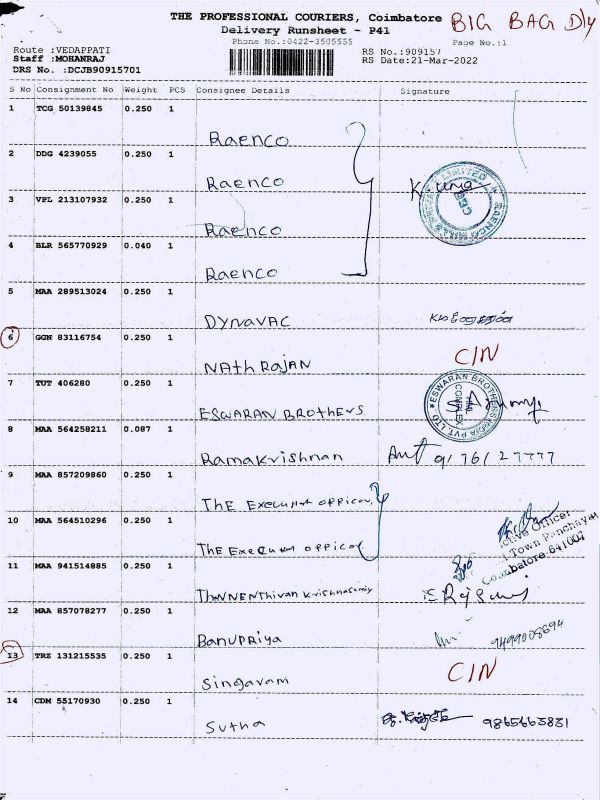 THE PROFESSIONAL COURIERS, Coimbatore BIG BAG Dly
Delivery Runsheet - P41
Phone No.:0422-3505555 Page No.:1
Route :VEDAPPATI RS No.:909157
Staff :MOHANRAJ RS Date:21-Mar-2022
DRS No. :DCJB90915701
S No Consignment No Weight PCS Consignee Details Signature
1 TCG 50139845 0.250 1
Raenco
2 DDG 4239055 0.250 1
Raenco
K. Uma
3 VPL 213107932 0.250 1
Raenco
4 BLR 565770929 0.040 1
Raenco
5 MAA 289513024 0.250 1
DYNAVAC
6 GGN 83116754 0.250 1
NAthRAJAN C/N
7 TUT 406280 0.250 1
ESWARAN BROTHERS
ESWARAN BROTHERS INDIA PVT. LTD
COMPLEX
8 MAA 564258211 0.087 1
Ramakrishnan 9176127777
9 MAA 857209860 0.250 1
The
10 MAA 564510296 0.250 1
The
Executive Officer
Town Panchayat
Coimbatore-641007
11 MAA 941514885 0.250 1
12 MAA 857078277 0.250 1
Banupriya 9499008694
13 TRZ 131215535 0.250 1
Singavam C/N
14 CDM 55170930 0.250 1
Sutha 9865663831